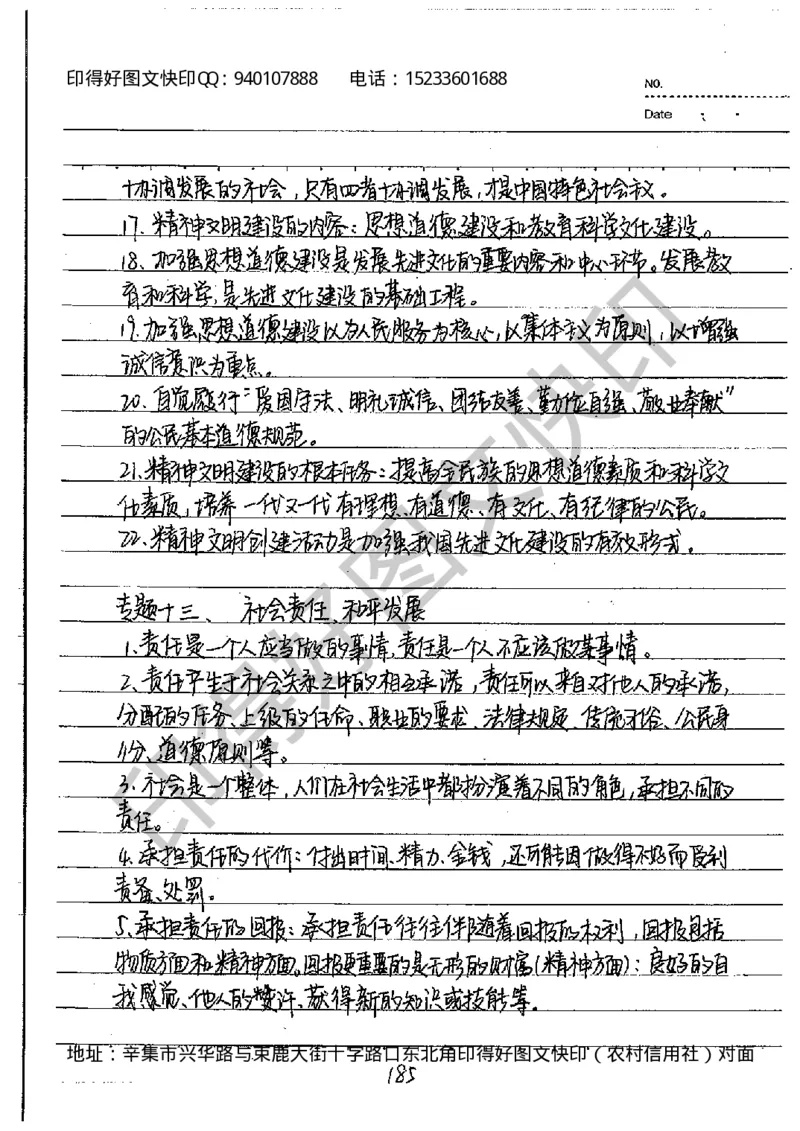 印得好图文快印QQ：940107888 电话：15233601688
NO.
Date
协调发展的社会，只有四者协调发展，才是中国特色社会主义。
17、精神文明建设的内容：思想道德建设和教育科学文化建设。
18、加强思想道德建设是发展先进文化的重要内容和中心环节。发展教
育和科学，是先进文化建设的基础工程。
19、加强思想道德建设以为人民服务为核心，以集体主义为原则，以增强
诚信意识为重点。
20、自觉履行“爱国守法、明礼诚信、团结友善、勤俭自强、敬业奉献”
的公民基本道德规范。
21、精神文明建设的根本任务：提高全民族的思想道德素质和科学文
化素质，培养一代又一代有理想、有道德、有文化、有纪律的公民。
22、精神文明创建活动是加强我国先进文化建设的有效形式。
专题十三、 社会责任、和平发展
1、责任是一个人应当做的事情，责任是一个人不应该做某事情。
2、责任产生于社会关系之中的相互承诺，责任可以来自对他人的承诺，
分配的任务、上级的任命、职业的要求、法律规定、传统习俗、公民身
份、道德原则等。
3、社会是一个整体，人们在社会生活中都扮演着不同的角色，承担不同的
责任。
4、承担责任的代价：付出时间、精力、金钱，还可能因做得不好而受到
责备、处罚。
5、承担责任的回报：承担责任往往伴随着回报的权利，回报包括
物质方面和精神方面。回报更重要的是无形的财富(精神方面)：良好的自
我感觉、他人的赞许、获得新的知识或技能等。
地址：辛集市兴华路与束鹿大街十字路口东北角印得好图文快印（农村信用社）对面
185
印得好图文快印